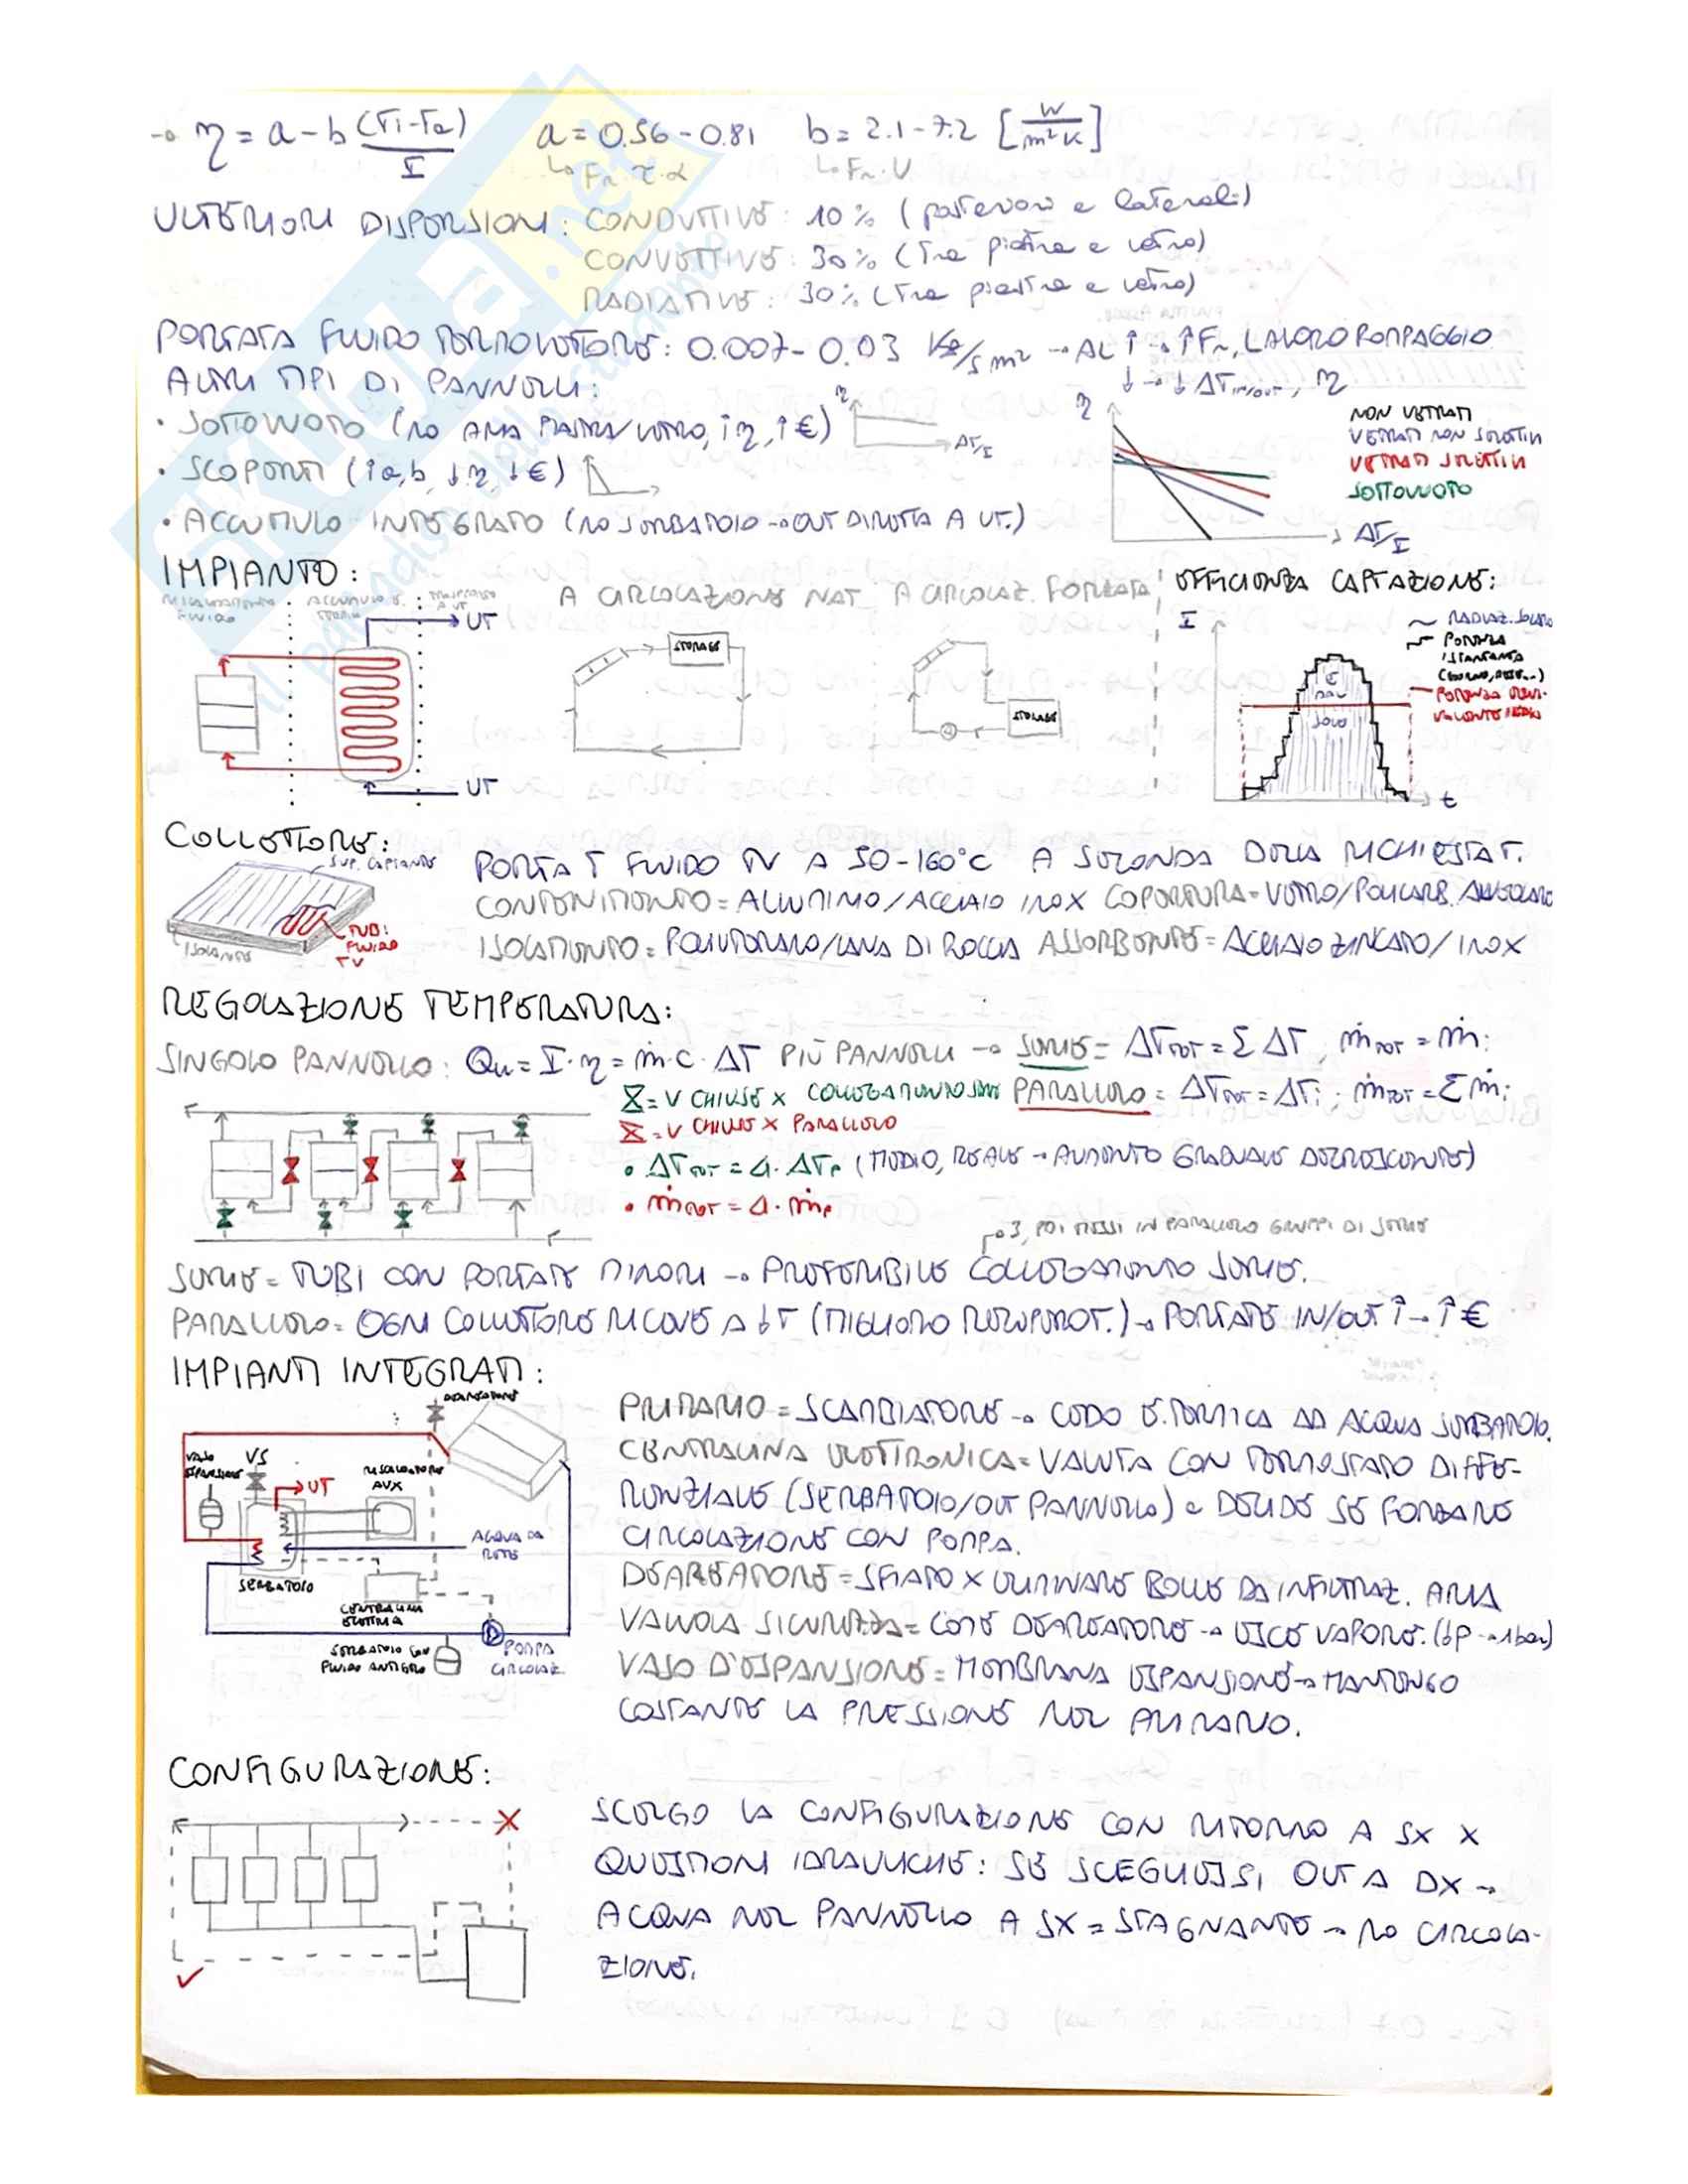 → η = a - b (Ti-Ta)/I   a = 0.56 - 0.81   b = 2.1 - 7.2 [W/m²K]
↳ Fr·τ·α   ↳ Fr·U
ULTERIORI DISPERSIONI: CONDUTTIVE: 10% (posteriori e laterali)
CONVETTIVE: 30% (tra piastra e vetro)
RADIATIVE: 30% (tra piastra e vetro)
PORTATA FLUIDO TERMOVETTORE: 0.007 - 0.03 Kg/s m² → AL ↑ → ↑ Fr, LAVORO POMPAGGIO
↓ → ↓ ΔTin/out, η
ALTRI TIPI DI PANNELLI:
• SOTTOVUOTO (NO ARIA PIASTRA/VETRO, ↑η, ↑€)   η   ΔT/I
• SCOPERTI (↑a,b, ↓η, ↓€)
• ACCUMULO INTEGRATO (NO SERBATOIO → OUT DIRETTA A UT.)
η   ΔT/I
NON VETRATI
VETRATI NON SELETTIVI
VETRATI SELETTIVI
SOTTOVUOTO
IMPIANTO:
RISCALDAMENTO FLUIDO   ACCUMULO E. TERMICA   TRASPORTO A UT
UT
UT
A CIRCOLAZIONE NAT.   A CIRCOLAZ. FORZATA
STORAGE
STORAGE
EFFICIENZA CAPTAZIONE:
I
RADIAZ. SOLARE
POTENZA ISTANTANEA
t
COLLETTORE:
SUP. CAPTANTE
ISOLANTE
TUBI FLUIDO TV
PORTA T FLUIDO TV A 50-160°C A SECONDA DELLA RICHIESTA T.
CONTENIMENTO = ALLUMINIO/ACCIAIO INOX COPERTURA = VETRO/POLICARB. ALVEOLARE
ISOLAMENTO = POLIURETANO/LANA DI ROCCIA ASSORBENTE = ACCIAIO ZINCATO/INOX
REGOLAZIONE TEMPERATURA:
SINGOLO PANNELLO: Qu = I·η = ṁ·c·ΔT PIÙ PANNELLI → SERIE = ΔTTOT = Σ ΔT, ṁTOT = ṁi
PARALLELO = ΔTTOT = ΔTi; ṁTOT = Σ ṁi
= V CHIUSE X COLLEGAMENTO SERIE
= V CHIUSE X PARALLELO
• ΔTTOT = 4·ΔTP (MEDIO, REALE → AUMENTO GRADUALE DECRESCENTE)
• ṁTOT = 4·ṁP
→ 3, POI MESSI IN PARALLELO GRUPPI DI SERIE
SERIE = TUBI CON PORTATE MINORI → PREFERIBILE COLLEGAMENTO SERIE.
PARALLELO = OGNI COLLETTORE RICEVE A ↓T (MIGLIORO RECUPERO T.) → PORTATE IN/OUT ↑ → ↑ €
IMPIANTI INTEGRATI:
DEAREATORE
VASO ESPANSIONE   VS
UT
RISCALDATORE AUX
ACQUA DA RETE
SERBATOIO
CENTRALINA ELETTRICA
SERBATOIO CON FLUIDO ANTIGELO
POMPA CIRCOLAZ.
PRIMARIO = SCAMBIATORE → CEDO E. TERMICA AD ACQUA SERBATOIO.
CENTRALINA ELETTRONICA = VALUTA CON TERMOSTATO DIFFE-
RENZIALE (SERBATOIO/OUT PANNELLO) e DECIDE SE FORZARE
CIRCOLAZIONE CON POMPA.
DEAREATORE = SFIATO X ELIMINARE BOLLE DA INFILTRAZ. ARIA
VALVOLA SICUREZZA = COME DEAREATORE → ESCE VAPORE. (↓p → 1bar)
VASO D'ESPANSIONE = MEMBRANA ESPANSIONE → MANTENGO
COSTANTE LA PRESSIONE NEL PRIMARIO.
CONFIGURAZIONE:
SCELGO LA CONFIGURAZIONE CON RITORNO A SX X
QUESTIONI IDRAULICHE: SE SCEGLIESSI OUT A DX →
ACQUA NEL PANNELLO A SX = STAGNANTE → NO CIRCOLA-
ZIONE.